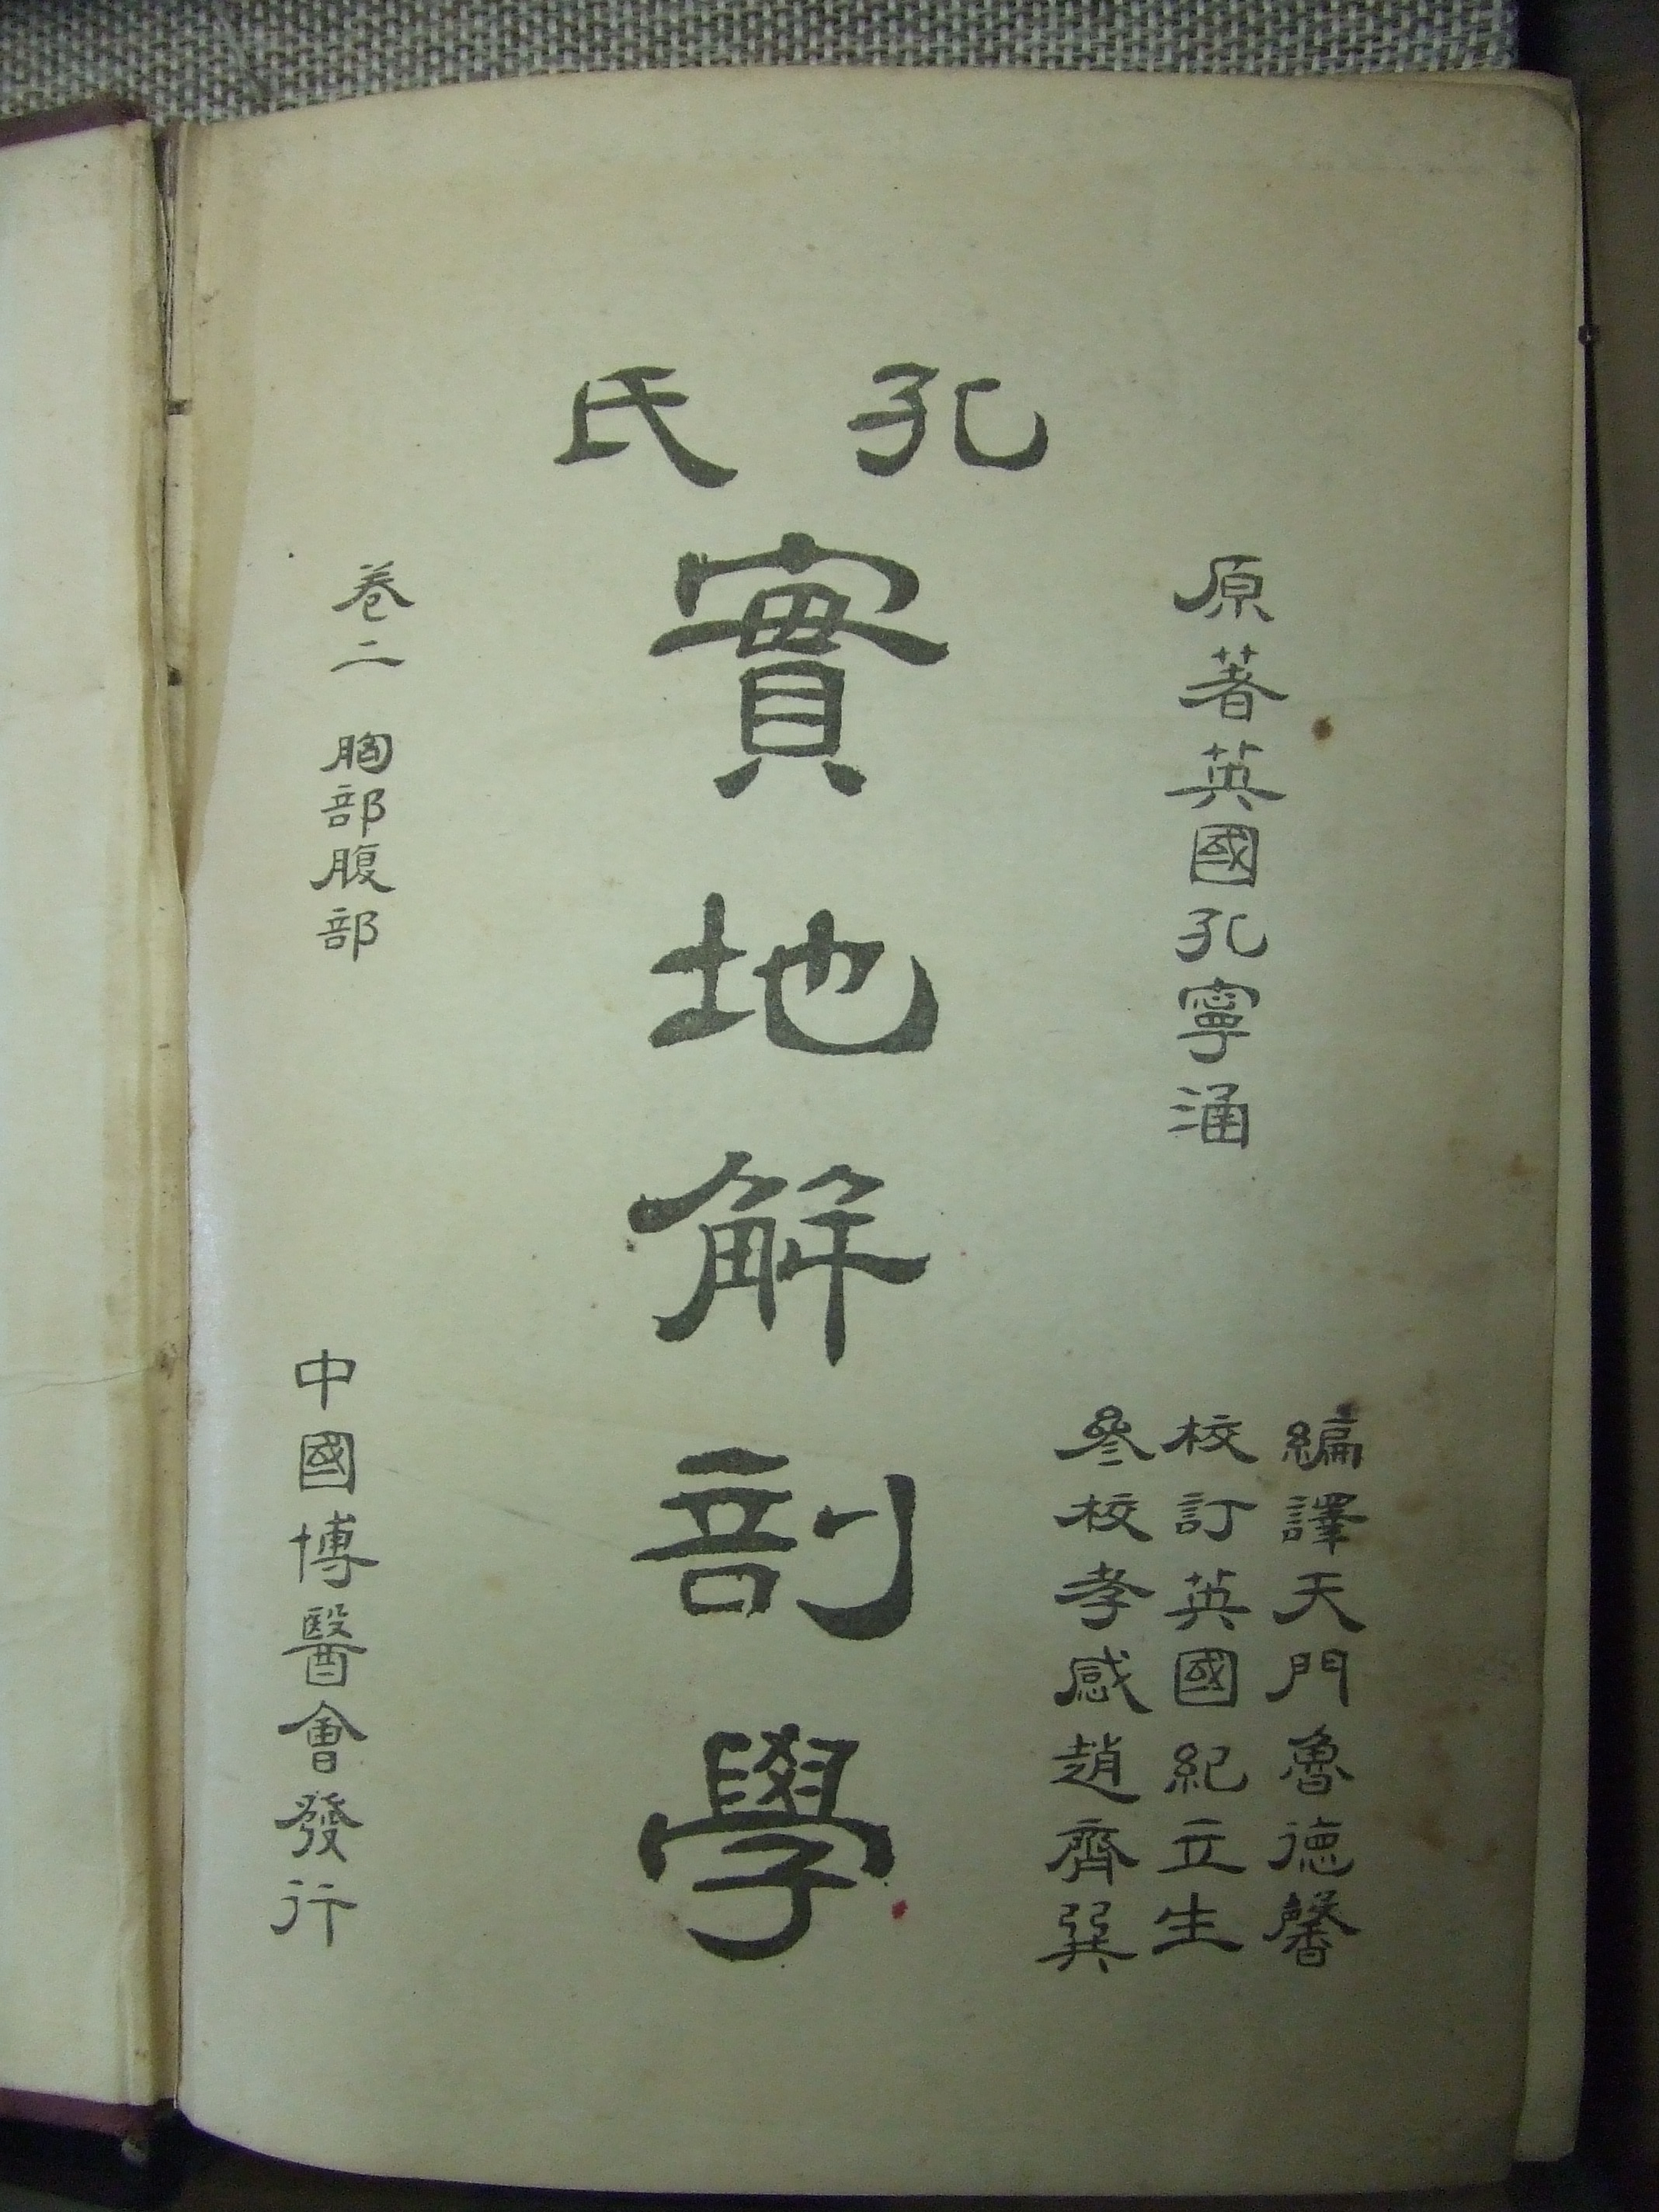 孔氏
實地解剖學
原著英國孔寧涵
編譯天門魯德馨
校訂英國紀立生
參校孝感趙齊巽
卷二 胸部腹部
中國博醫會發行